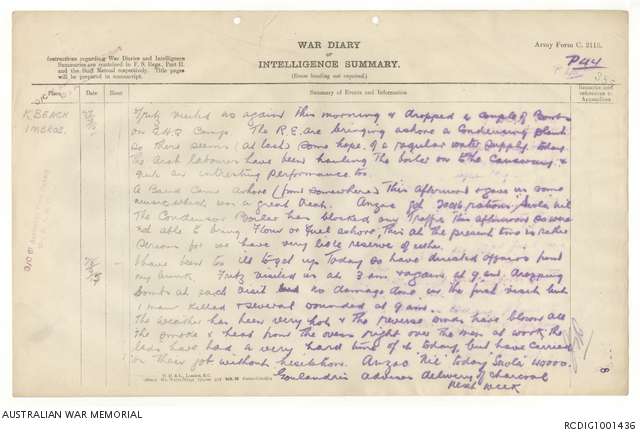 WAR DIARY
or
INTELLIGENCE SUMMARY.
(Erase heading not required.)
Army Form C. 2118.
Instructions regarding War Diaries and Intelligence
Summaries are contained in F. S. Regs., Part II.
and the Staff Manual respectively. Title pages
will be prepared in manuscript.
Place Date Hour Summary of Events and Information Remarks and
references to
Appendices
K. BEACH
IMBROS.
Fritz visited us again this morning & dropped a couple of Bombs
on G.H.Q Camp. The R.E. are bringing ashore a Condensing plant
so there seems (at last) some hope of a regular water supply. today
the Arab labourers have been hauling the boiler on to the Causeway &
quite an interesting performance too.
A Band came ashore (from somewhere) This afternoon & gave us some
music which was a great treat. Anzac rations, Suvla Nil
The Condensor Boiler has blocked any Traffic this afternoon so were
not able to bring Flour or Fuel ashore. This at the present time is rather
serious for we have very little reserve of either.
I have been too ill to get up today so have directed affairs from
my bunk. Fritz visited us at 3 am & again at 9 am. dropping
bombs at each visit no damage done in the first visit but
1 man killed & several wounded at 9 am.
The weather has been very hot & the reverse winds have blown all
the smoke & heat from the ovens right over the men at work, the
lads have had a very hard time of it today, but have carried
on their job without hesitation. Anzac 'Nil' today Suvla 40000.
Goulandris advises delivery of charcoal
next week
8
AUSTRALIAN WAR MEMORIAL
RCDIG1001436